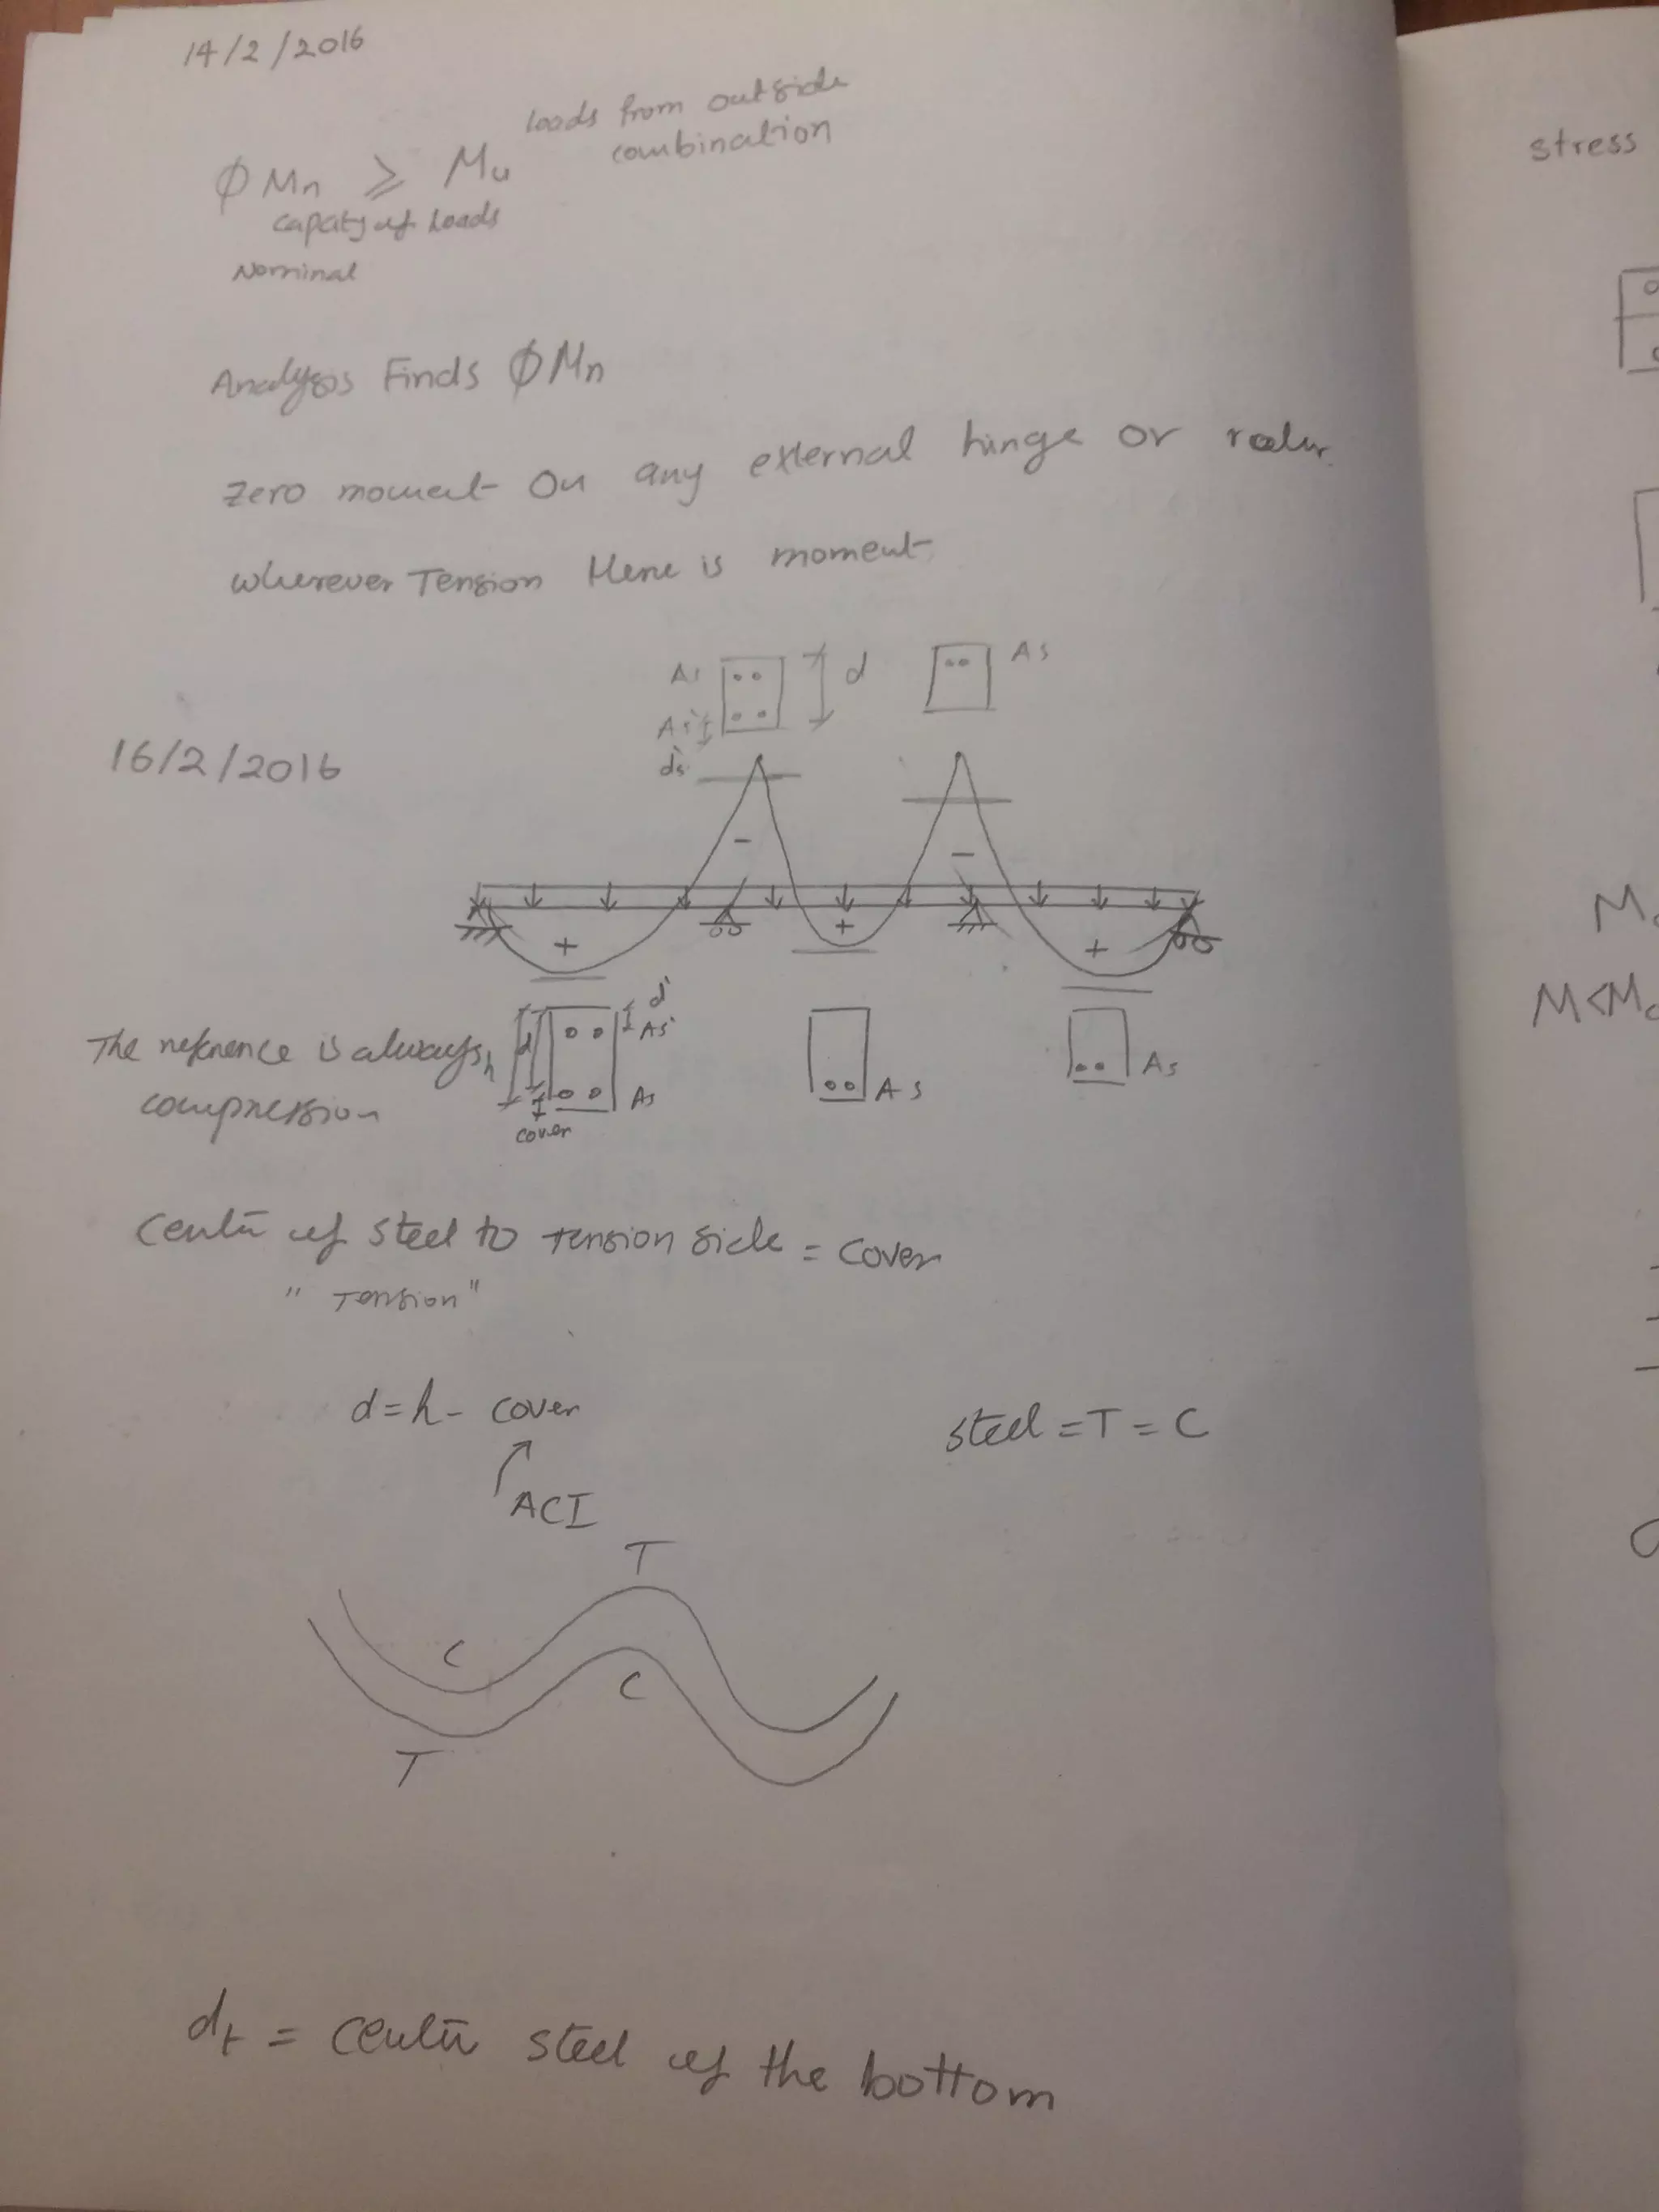 14/2/2016
loads from outside
combination
ϕMn ⩾ Mu
capaty of loads
Nominal
Analysis Finds ϕMn
Zero moment on any external hinge or roler.
wherever Tension there is moment
As d As
As'
ds'
16/2/2016
- -
+ + +
d'
The reference is always h d As'
compression As As As
cover
Center of steel to tension side = cover
"Tension"
d = h - cover
steel = T = C
ACI
T
C
C
T
dt = center steel of the bottom
stress
M
M<Mc